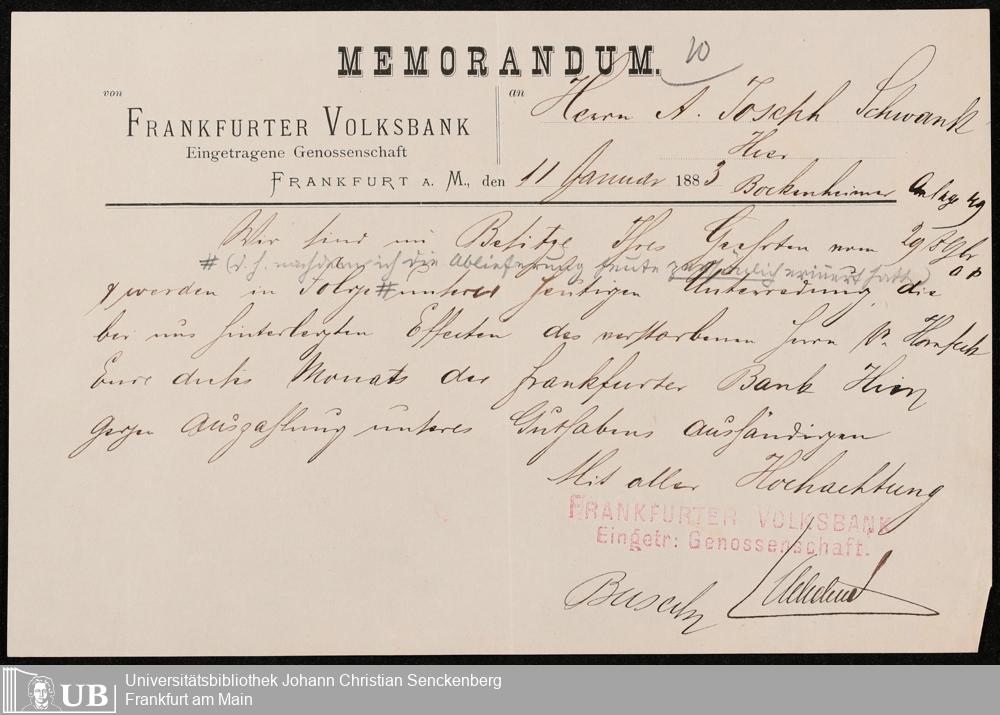 MEMORANDUM.
von
an
FRANKFURTER VOLKSBANK
Eingetragene Genossenschaft
FRANKFURT A. M., den 11 Januar 1883
Herrn A. Joseph Schwank
Hier
Bockenheimer Anlage 49
Wir sind im Besitze Ihres Geehrten vom 29
# (d. h. nachdem ich die Ablieferung heute persönlich erinnert hatte)
& werden in Folge # unserer heutigen Unterredung, die
bei uns hinterlegten Effecten des verstorbenen Herrn Dr. Hornfeck
Ende dieses Monats der Frankfurter Bank Hier
gegen Auszahlung unseres Guthabens aushändigen
Mit aller Hochachtung
FRANKFURTER VOLKSBANK
Eingetr: Genossenschaft.
Busch
UB
Universitätsbibliothek Johann Christian Senckenberg
Frankfurt am Main